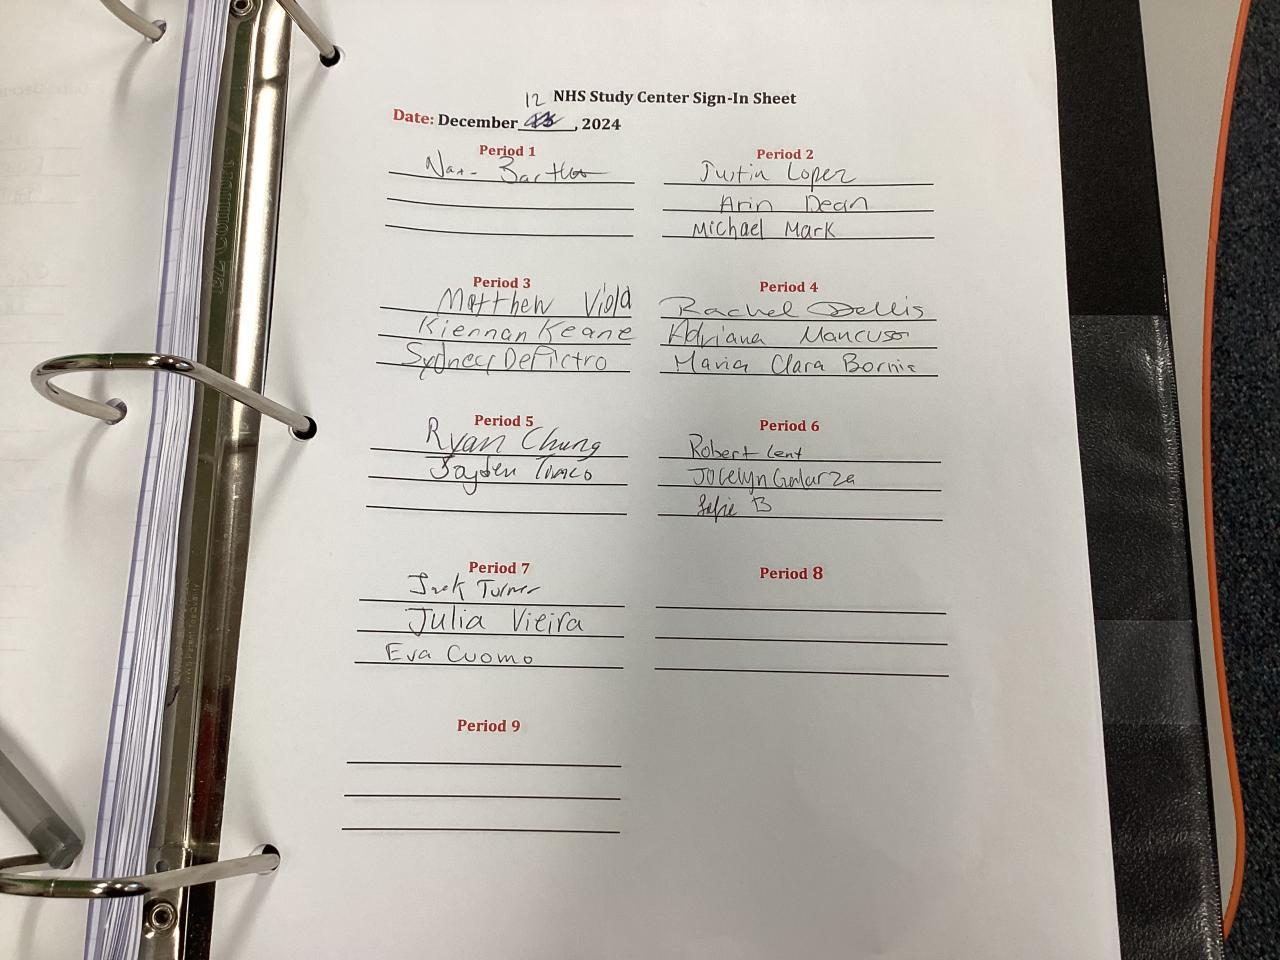 NHS Study Center Sign-In Sheet
12
Date: December , 2024
Period 1
Period 2
Justin Lopez
Arin Dean
Michael Mark
Period 3
Matthew Viola
Kiernan Keane
Sydney DePietro
Period 4
Rachel Dellis
Adriana Mancuso
Maria Clara
Period 5
Ryan Chung
Jayden
Period 6
Robert Lent
Jocelyn Galarza
B
Period 7
Jack Turner
Julia Vieira
Eva Cuomo
Period 8
Period 9